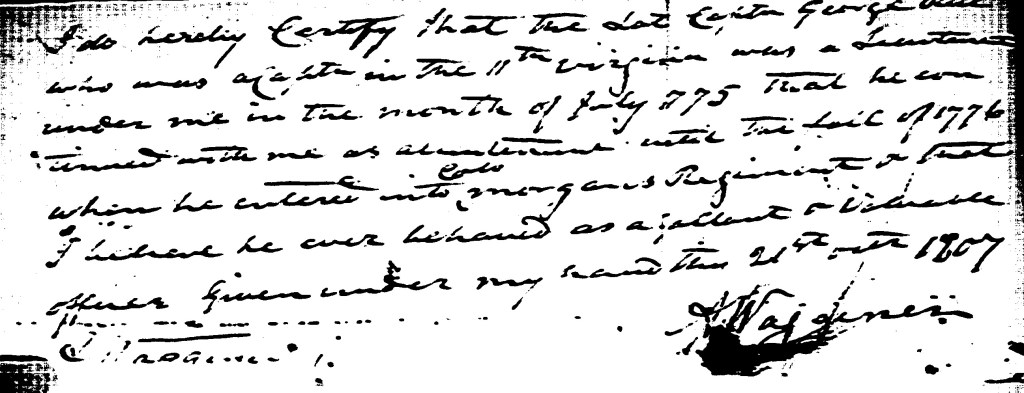 I do hereby Certify that the Lat Captn George
who was a Captn in the 11th virginia was a Lieutenant
under me in the month of July 1775 that he con
tinued with me as a Lieutenant until the Lail of 1776
when he entered into Colo morgans Regiment & that
I believe he ever behaved as a gallant & Valuable
officer Given under my hand this 21st octr 1807
A Waggener
Waggener